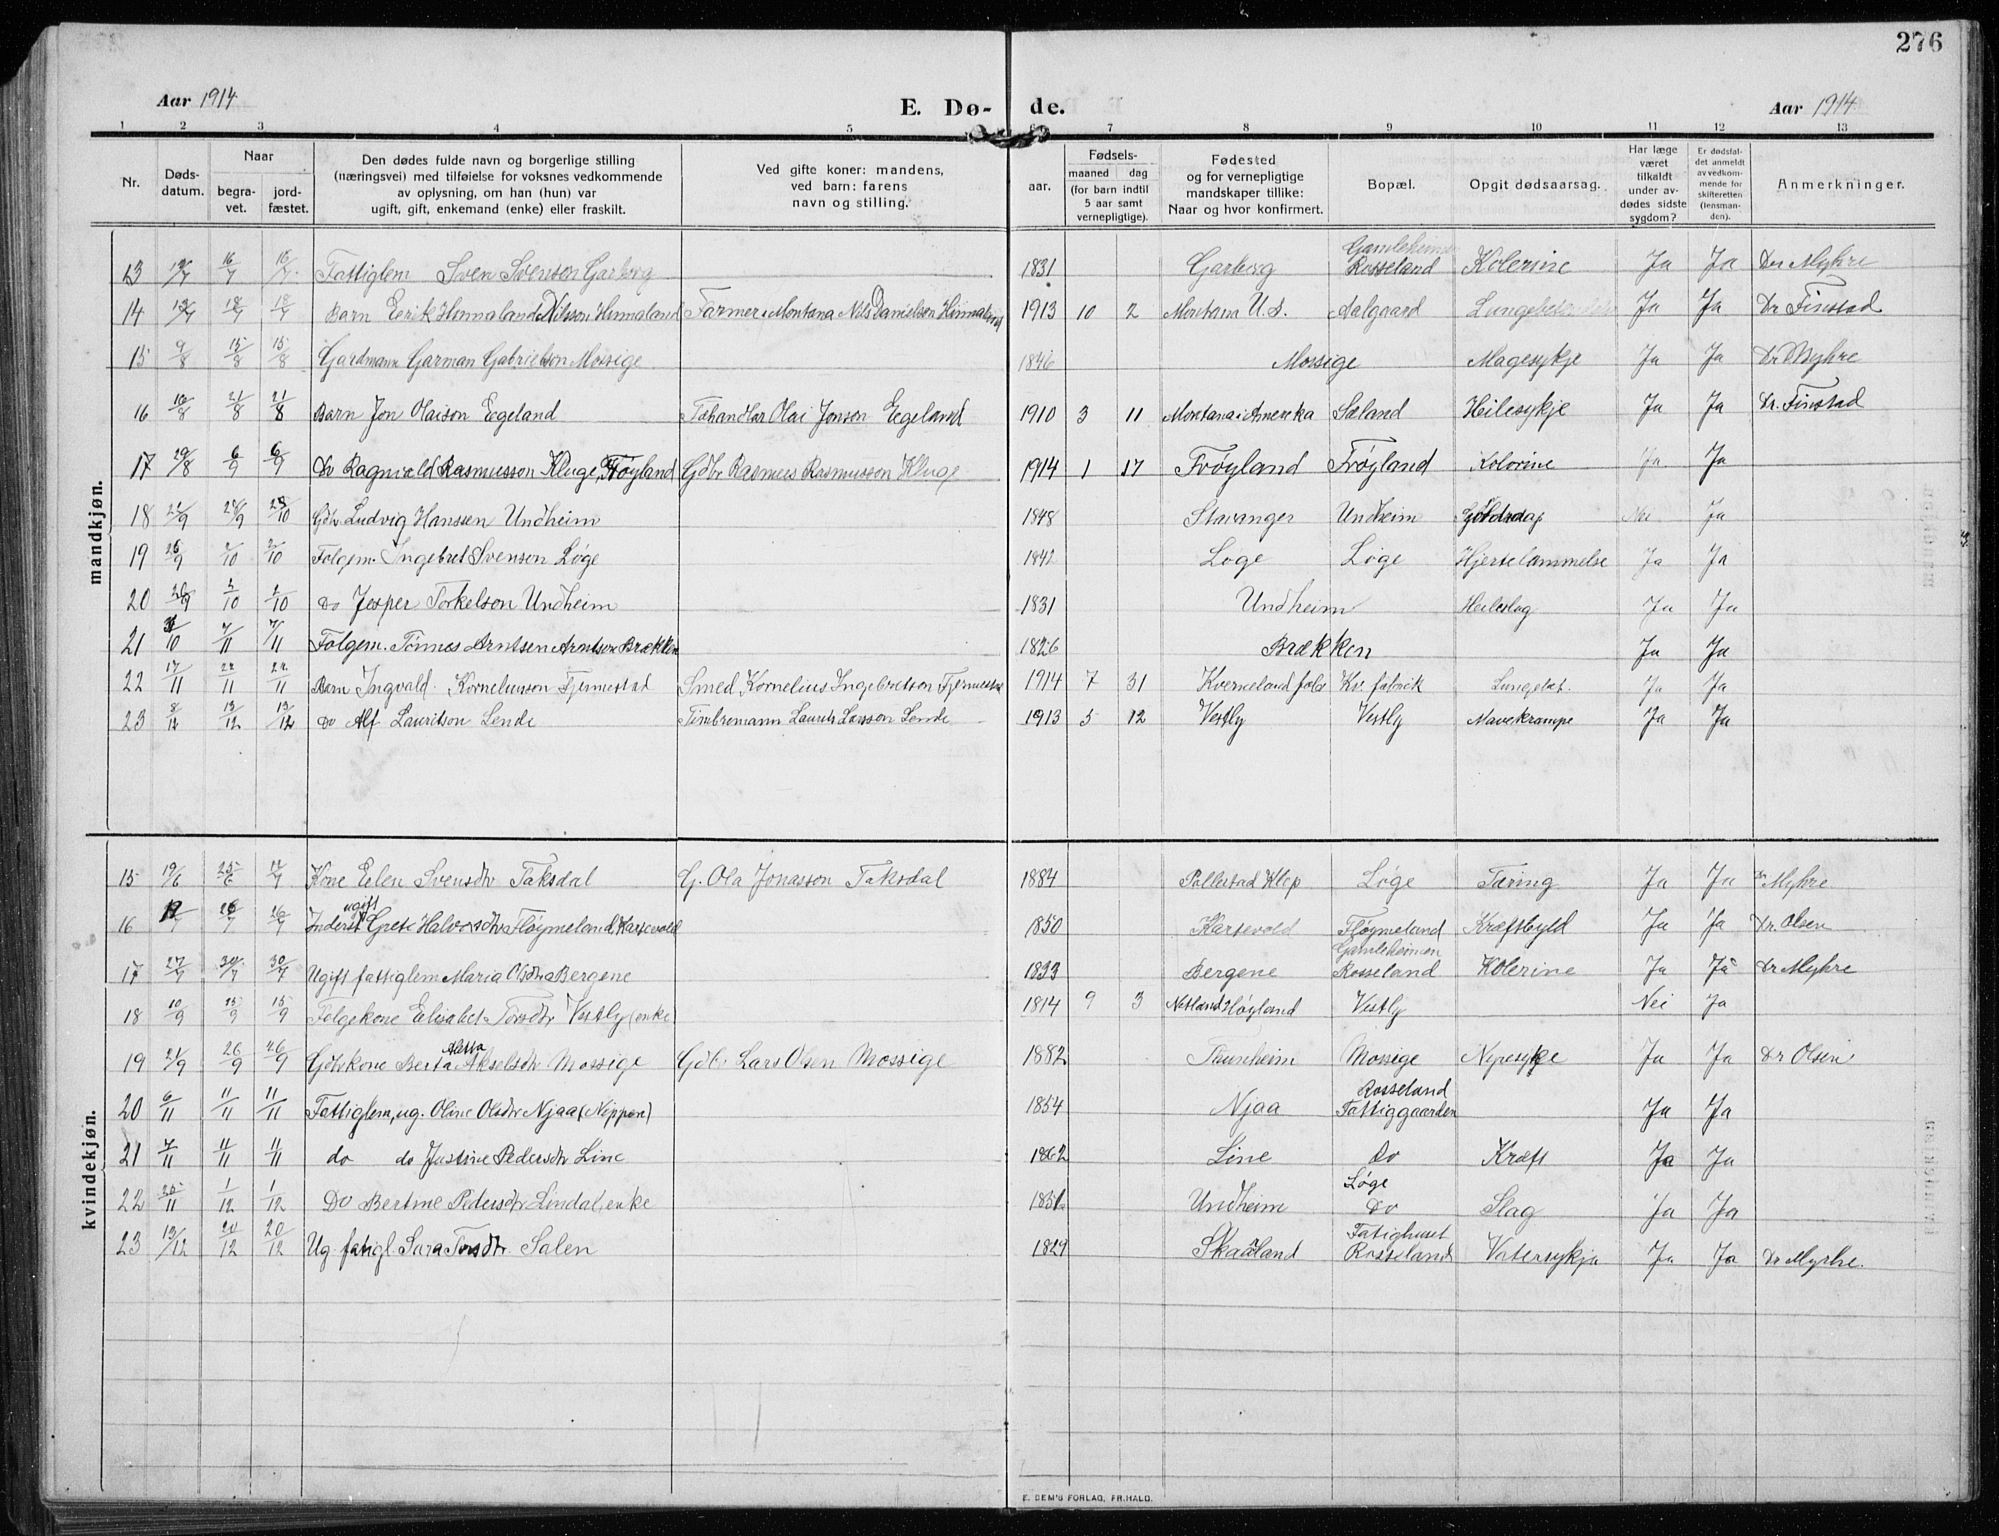 276
Aar 1914 E. Dø- de. Aar 1914
1 2 3 4 5 6 7 8 9 10 11 12 13
Nr.
Døds-
datum.
Naar
begra-
vet.
jord-
fæstet.
Den dødes fulde navn og borgerlige stilling
(næringsvei) med tilføielse for voksnes vedkommende
av oplysning, om han (hun) var
ugift, gift, enkemand (enke) eller fraskilt.
Ved gifte koner: mandens,
ved barn: farens
navn og stilling.
aar.
Fødsels-
maaned dag
(for barn indtil
5 aar samt
vernepligtige).
Fødested
og for vernepligtige
mandskaper tillike:
Naar og hvor konfirmert.
Bopæl.
Opgit dødsaarsag.
Har læge
været
tilkaldt
under av-
dødes sidste
sygdom?
Er dødsfal-
det anmeldt
av vedkom-
mende for
skifteretten
(lensman-
den).
Anmerkninger.
mandkjøn.
13 16/7 16/7 Fattiglem Sven Svenson Garborg 1831 Garborg Gamleheimen Rosseland Kolerine Ja Ja Dr Myhre
14 18/7 18/7 Barn Eerik Hinnaland Nilsson Hinnaland Farmer i Montana Nils Danielsen Hinnaland 1913 10 2 Montana U.S. Aalgaard Ja Ja Dr Finstad
15 9/8 15/8 15/8 Gardmann Garman Gabrielson Mossige 1846 Mossige Magesykje Ja Ja Dr Myhre
16 16/8 21/8 21/8 Barn Jon Olaison Eegeland Olai Jonson Eegeland 1910 3 11 Montana i Amerika Sæland Heilesykje Ja Ja Dr. Finstad
17 29/8 6/9 6/9 Do Ragnvald Rasmusson Kluge, Frøyland Gdbr Rasmus Rasmusson Kluge 1914 1 17 Frøyland Frøyland Kolorine Ja Ja
18 22/9 28/9 Gdbr Ludvig Hanssen Undheim 1848 Stavanger Undheim Nei Ja
19 26/9 2/10 2/10 Folgem. Ingebret Svenson Løge 1842 Løge Løge Hjertelammelse Ja Ja
20 26/9 2/10 2/10 Do Jesper Torkelson Undheim 1831 Undheim Heileslag Ja Ja
21 31/10 7/11 7/11 Folgem. Tønnes Arntsen Arntson Brækken 1826 Brækken Ja Ja
22 17/11 22/11 22/11 Barn Ingvald Korneliusson Fjermestad Smed Kornelius Ingebretson Fjermestad 1914 7 31 Kverneland fabr Kv. fabrik Lungebet. Ja Ja
23 8/12 13/12 13/12 Do Alf Lauritson Lende Timbremann Laurits Larsson Lende 1913 5 12 Vestly Vestly Mavekrampe Ja Ja
kvindekjøn.
15 19/6 25/6 Kone Eelen Svensdtr Taksdal G. Ola Jonasson Taksdal 1884 Pollestad Klep Løge Tæring Ja Ja Dr Myhre
16 26/7 26/7 Inderst ugift Grete Halvorsdtr Fløymeland, Karsevold 1850 Karsevold Fløymeland Kræftbyld Ja Ja Dr. Olsen
17 27/7 30/7 30/7 Ugift fattiglem Maria Olsdtr Bergene 1833 Bergene Gamleheimen Rosseland Kolerine Ja Ja Dr Myhre
18 10/9 15/9 15/9 Folgekone Eelisabet Torsdtr Vestly (enke) 1814 9 3 Netland Høyland Vestly Nei Ja
19 21/9 26/9 26/9 Gdbrkone Berta Aletta Akselsdtr Mossige Gdb. Lars Olsen Mossige 1882 Tunheim Mossige Nyresykje Ja Ja Dr Olsen
20 6/11 11/11 11/11 Fattiglem, ug. Oline Olsdtr Njaa (Nippen) 1854 Njaa Rosseland Fattiggaarden Ja Ja
21 7/11 11/11 11/11 do do Justine Pedersdtr Line 1862 Line Do Kræft Ja Ja
22 25/11 1/12 1/12 Do Bertine Pedersdtr Lindal, enke 1851 Undheim Løge Do Slag Ja Ja
23 13/12 20/12 20/12 Ug. fatigl. Sara Torsdtr Salen 1829 Skaaland Fatighuset Rosseland Vatersykja Ja Ja Dr Myhre.
E. DEM'S FORLAG, FR.HALD.